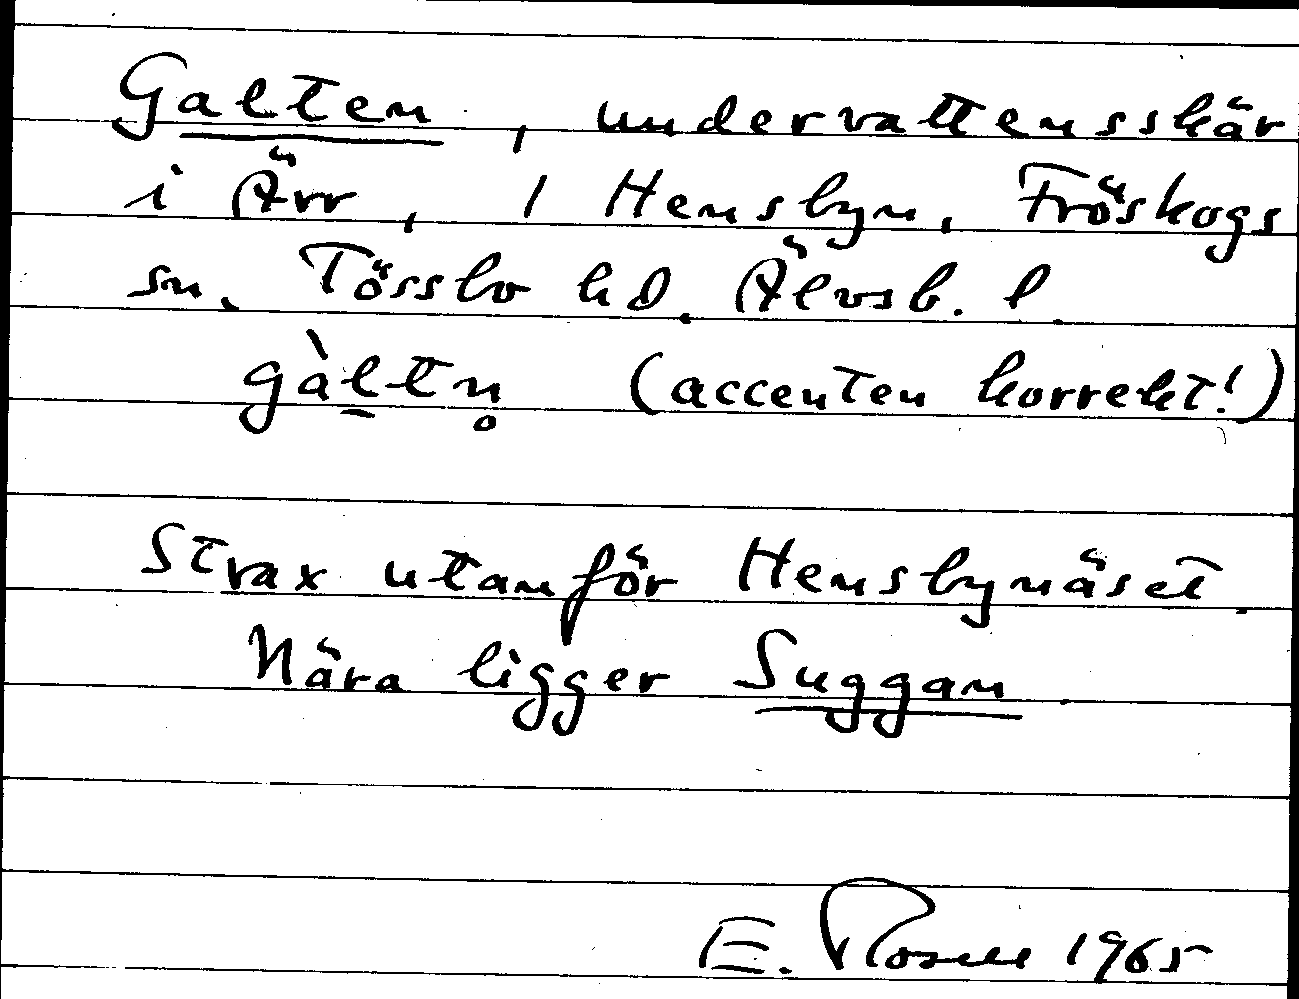 Galten, undervattensskär
i Ärr, 1 Hensbyn, Fröskogs
sn. Tössbo hd. Älvsb. l.
gàl̠tn̥ (accenten korrekt!)
Strax utanför Hensbynäset.
Nära ligger Suggan.
E. Rosell 1965